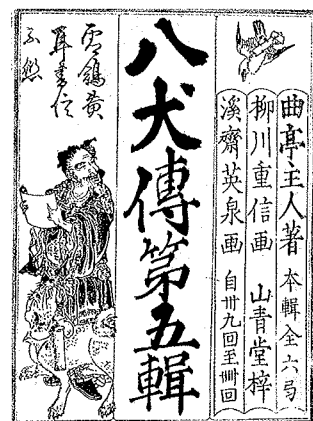 曲亭主人著 本輯全六
柳川重信画 山青堂梓
溪齋英泉画 自卅九回至卌回
八犬傳第五輯
雪鴿黄
耳書信
不愆